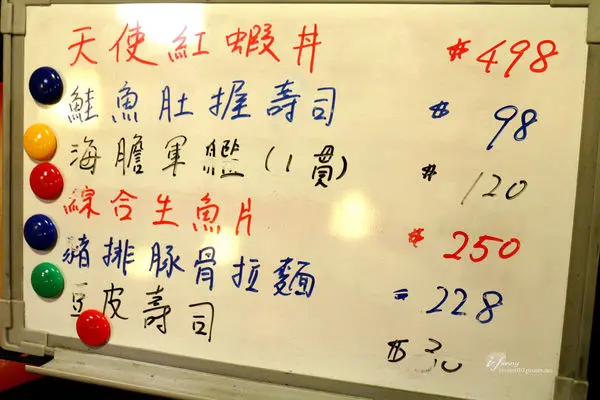 天使紅蝦丼 $498
鮭魚肚握壽司 $98
海膽軍艦(1貫) $120
綜合生魚片 $250
豬排豚骨拉麵 228
豆皮壽司 $30